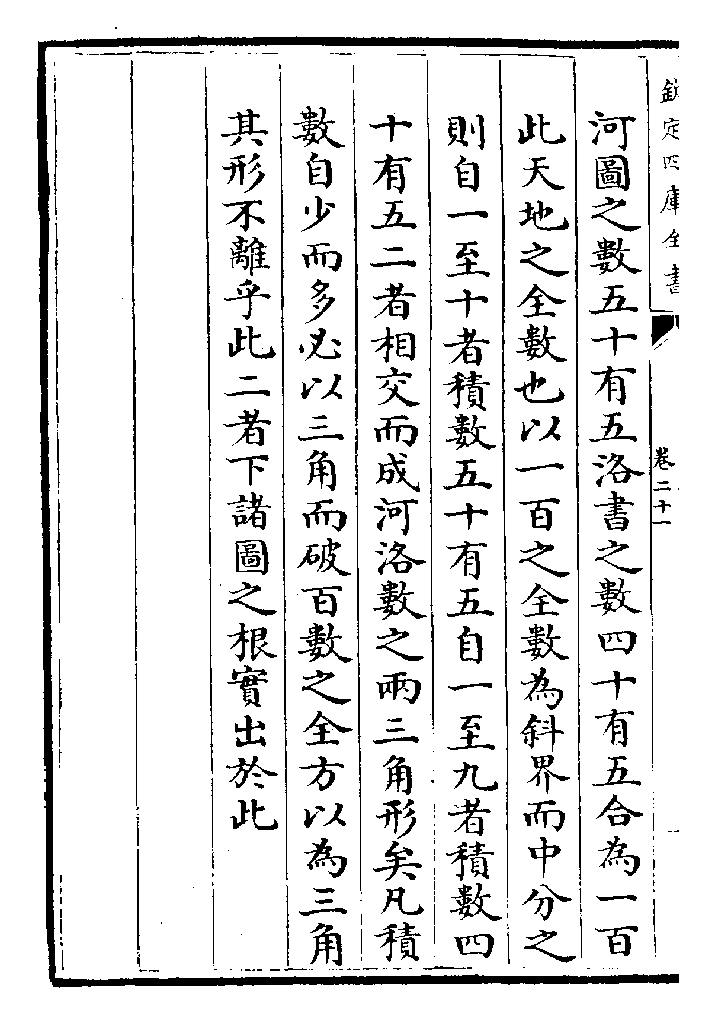 欽定四庫全書
卷二十一
河圖之數五十有五洛書之數四十有五合為一百
此天地之全數也以一百之全數為斜界而中分之
則自一至十者積數五十有五自一至九者積數四
十有五二者相交而成河洛數之兩三角形矣凡積
數自少而多必以三角而破百數之全方以為三角
其形不離乎此二者下諸圖之根實出於此